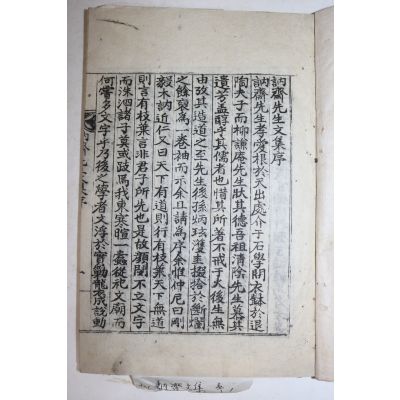 訥齋先生文集序
訥齋先生孝愛根於天出處介于石學問衣鉢於退
陶夫子而柳謙庵先生狀其德吾祖淸陰先生慕其
遺芳盖醇乎其儒者也惜其所著不戒于火後生無
由攷其造道之至先生後孫炳掇拾於斷爛
之餘裒爲一卷袖而示余且請爲序余惟仲尼曰剛
毅木訥近仁又曰天下有道則行有枝葉天下無道
則言有枝葉言非君子所先也是故顔閔不立文字
而洙泗諸子莫或跂焉我東寒暄一蠹從祀文廟而
何嘗多文字乎乃後之學者文浮於實說動
訥齋文集